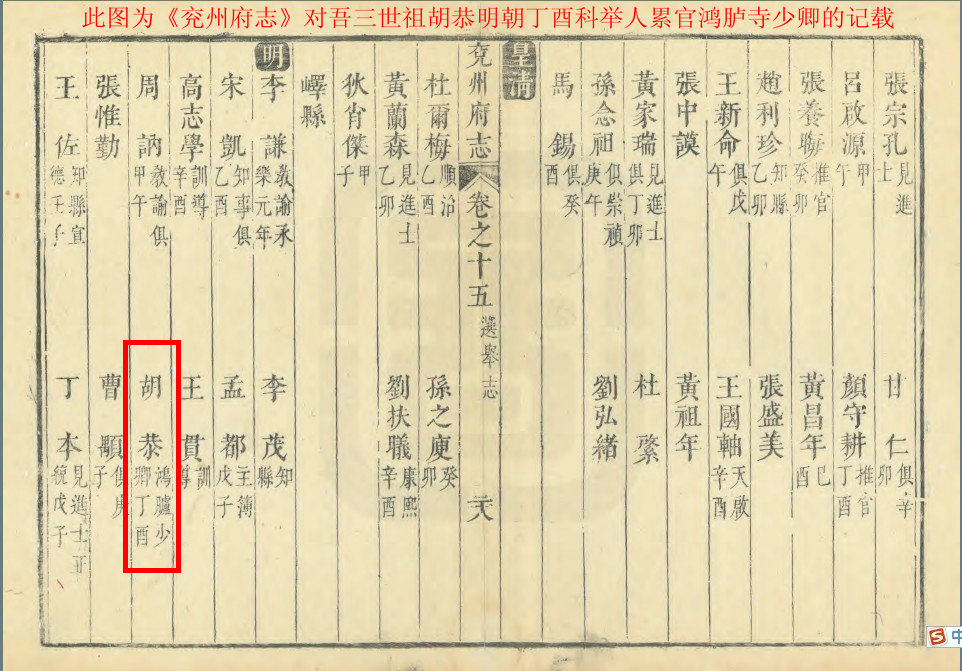 此图为《兖州府志》对吾三世祖胡恭明朝丁酉科举人累官鸿胪寺少卿的记载
張宗孔 見進士 甘仁 俱辛卯
呂啟源 甲午 顏守耕 推官丁酉
張養 推官癸卯 黃昌年 巳酉
趙利珍 知縣乙卯 張盛美
王新命 俱戊午 王國軸 天啟辛酉
張中謨 黃祖年
黃家瑞 見進士俱丁卯 杜
孫念祖 俱崇禎庚午 劉弘緒
馬錫 俱癸酉
皇清
兗州府志 卷之十五 選舉志
杜爾梅 順治乙酉 孫之 癸卯
黃蘭森 見進士乙卯 劉扶曦 康熙辛酉
狄肯傑 甲子
嶧縣
明
李謙 教諭永樂元年 李茂 知縣
宋凱 知事俱乙酉 孟都 主簿戊子
高志學 訓導辛酉 王貫 訓導
周訥 教諭俱甲午 胡恭 鴻臚少卿丁酉
張惟勤 曹顒 俱庚子
王佐 知縣宣德壬子 丁本 見進士正統戊子